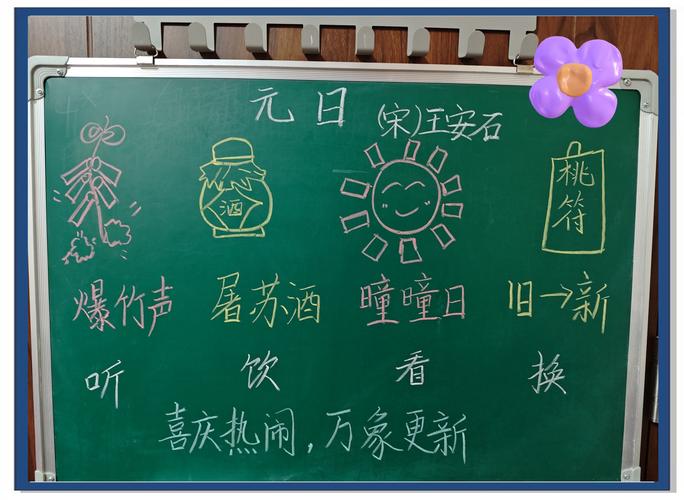 元日 (宋)王安石
酒
桃符
爆竹声 屠苏酒 曈曈日 旧→新
听 饮 看 换
喜庆热闹,万象更新